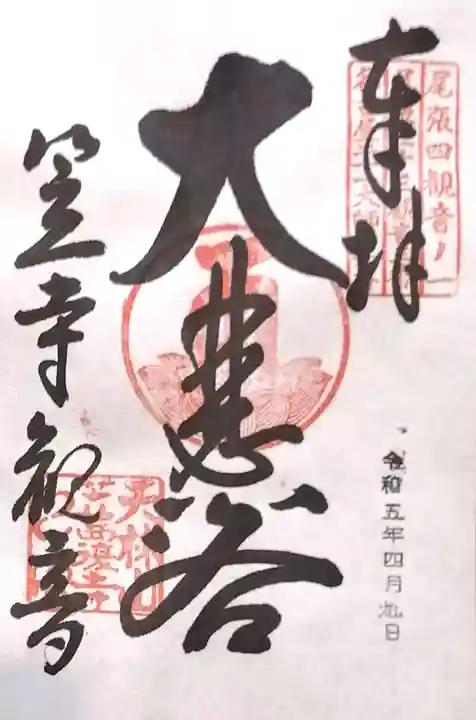 奉拝
尾張四観音ノ一
大悲閣
笠寺観音
天林山
令和五年四月九日